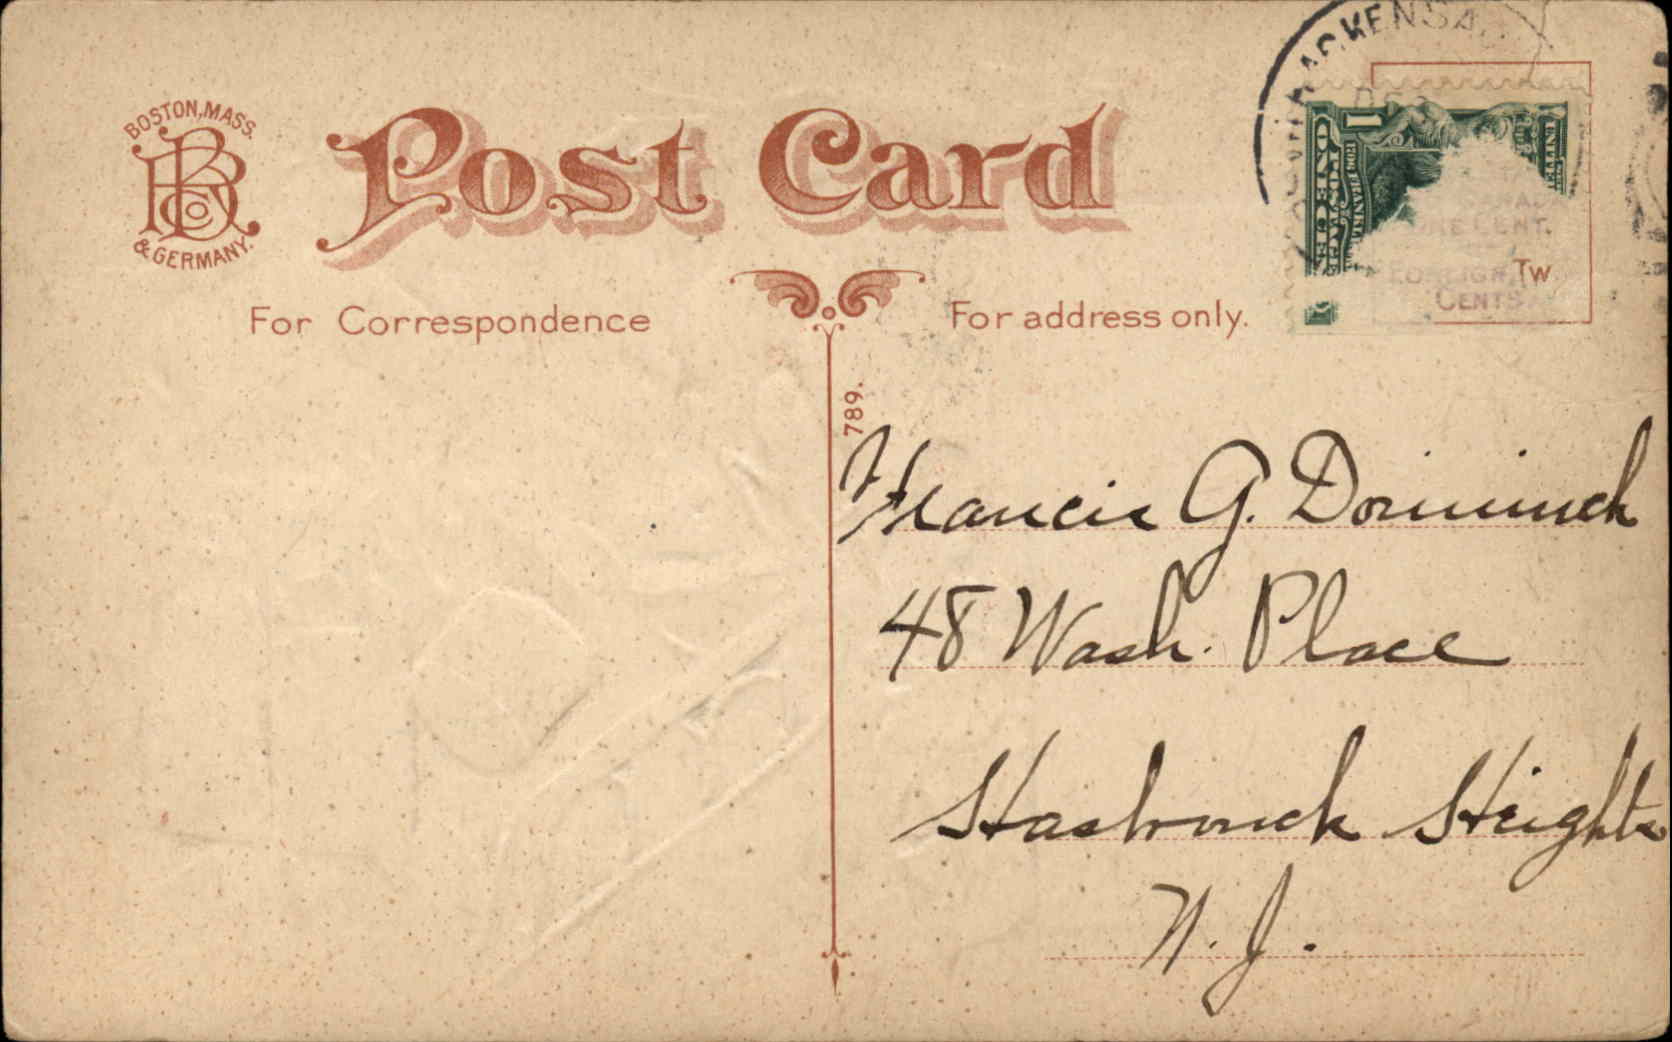 BOSTON, MASS.
& GERMANY.
Post Card
For Correspondence
For address only.
789.
HACKENSA
DEC
1
ONE CENT.
FOREIGN, Tw
CENTS
Francis G. Dominick
48 Wash. Place
Hasbrouck Heights
N. J.